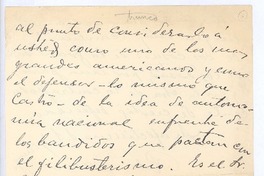 nunca
al punto de considerarlo á
usted como uno de los más
grandes americanos y como
el defensor - lo mismo que
Castro - de la idea de autono-
mía nacional enfrente de
los bandidos que pactan con
el filibusterismo. Es el Sr.